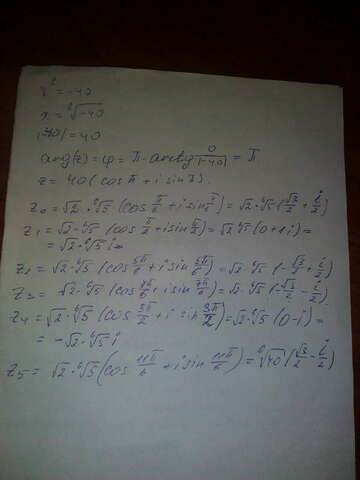 x⁶ = -40
x = ⁶√-40
|-40| = 40
arg(z) = φ = π - arctg 0/|-40| = π
z = 40(cos π + i sin π).
z₀ = √2 · ⁶√5 (cos π/6 + i sin π/6) = √2 · ⁶√5 (√3/2 + i/2)
z₁ = √2 · ⁶√5 (cos π/2 + i sin π/2) = √2 ⁶√5 (0 + 1i) =
= √2 · ⁶√5 i
z₂ = √2 · ⁶√5 (cos 5π/6 + i sin 5π/6) = √2 · ⁶√5 (-√3/2 + i/2)
z₃ = √2 · ⁶√5 (cos 7π/6 + i sin 7π/6) = √2 · ⁶√5 (-√3/2 - i/2)
z₄ = √2 · ⁶√5 (cos 3π/2 + i sin 3π/2) = √2 · ⁶√5 (0 - i) =
= -√2 · ⁶√5 i
z₅ = √2 · ⁶√5 (cos 11π/6 + i sin 11π/6) = ⁶√40 (√3/2 - i/2)